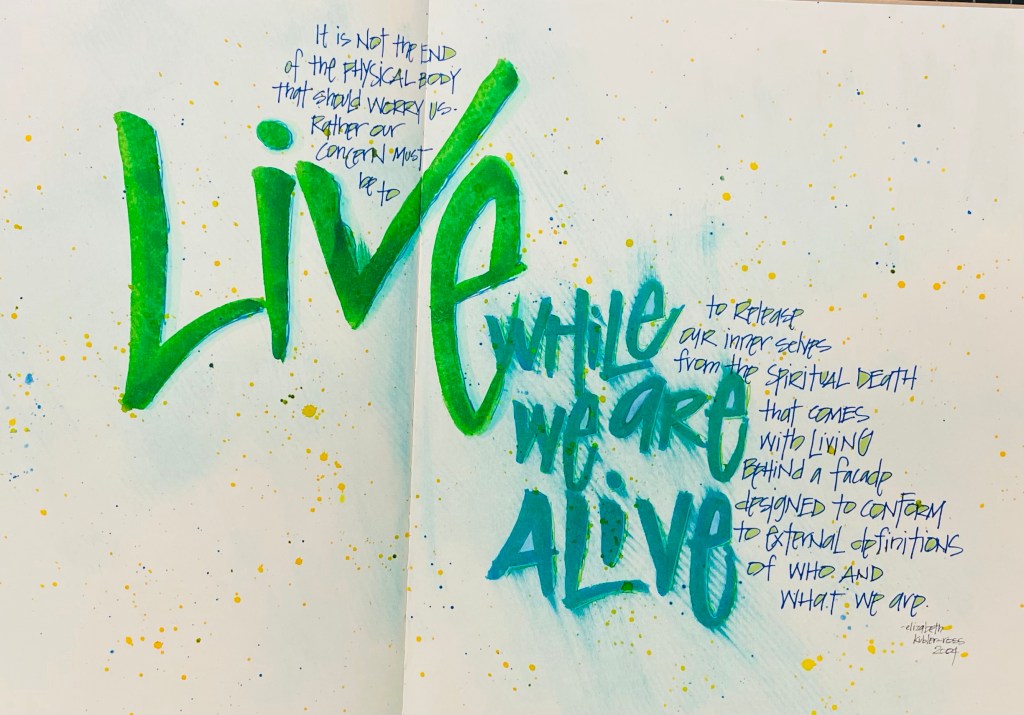 It is Not the END
of the PHYSICAL BODY
that should WORRY US.
Rather our
concern must
be to
Live
WHiLe
We aRe
ALive
to Release
our inner selves
from the SPIRITUAL DEATH
that comes
with LIVING
BEHIND a facade
designed to conform
to external definitions
of WHO AND
WHAT we are.
-elizabeth
kubler-ross
2004